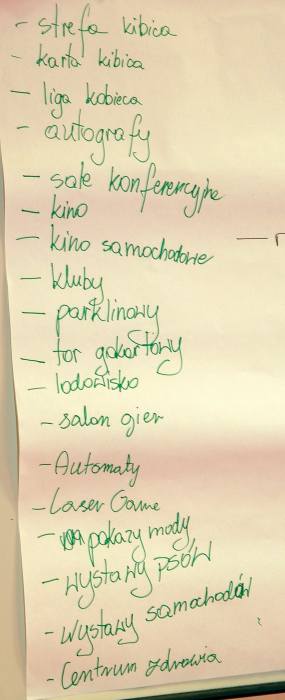 - strefa kibica
- karta kibica
- liga kobieca
- autografy
- sale konferencyjne
- kino
- kino samochodowe
- kluby
- park linowy
- tor gokartowy
- lodowisko
- salon gier
- Automaty
- Laser Game
- pokazy mody
- wystawy psów
- wystawy samochodów
- Centrum zdrowia